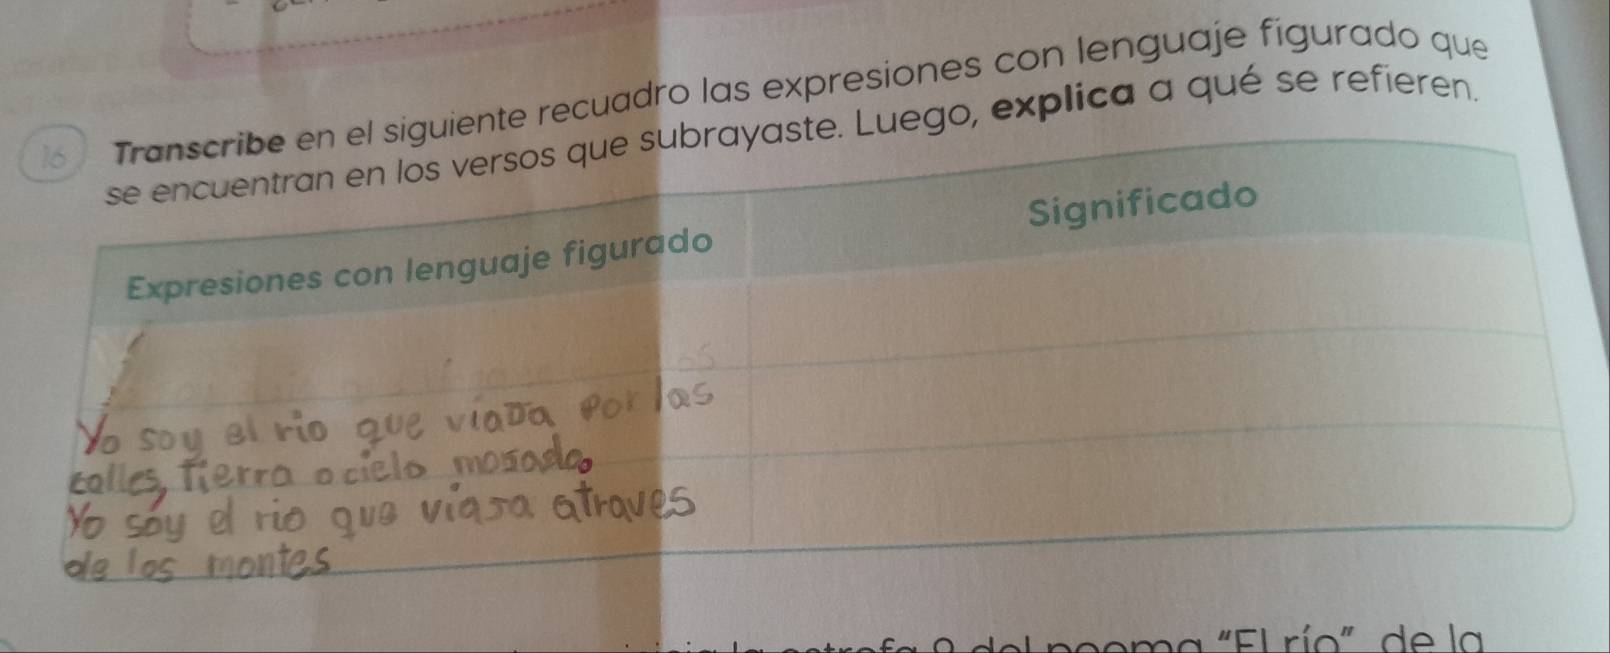 16 Transcribe en el siguiente recuadro las expresiones con lenguaje figurado que
se encuentran en los versos que subrayaste. Luego, explica a qué se refieren.
Expresiones con lenguaje figurado
Significado
Yo soy el rio que viaja por las
calles, Tierra o cielo mojado.
Yo soy el rio que viaja atraves
de los montes
del poema "El río" de la